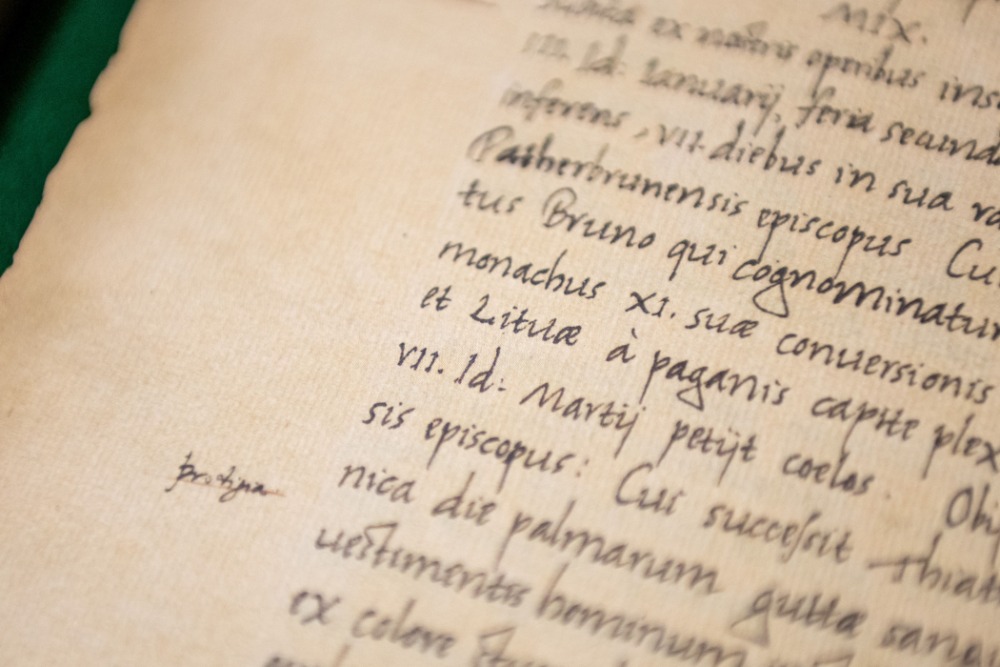 MIX.
ex nostris operibus
III. Id: Ianuarij, feria secunda
inferens, VII. diebus in sua
Patherbrunensis episcopus
tus Bruno qui cognominatur
monachus XI. suæ conuersionis
et Lituæ à paganis capite plex
VII. Id: Martij petijt coelos.
sis episcopus: Cui successit Thiat
nica die palmarum guttæ sang
uestimentis hominum
ex colore